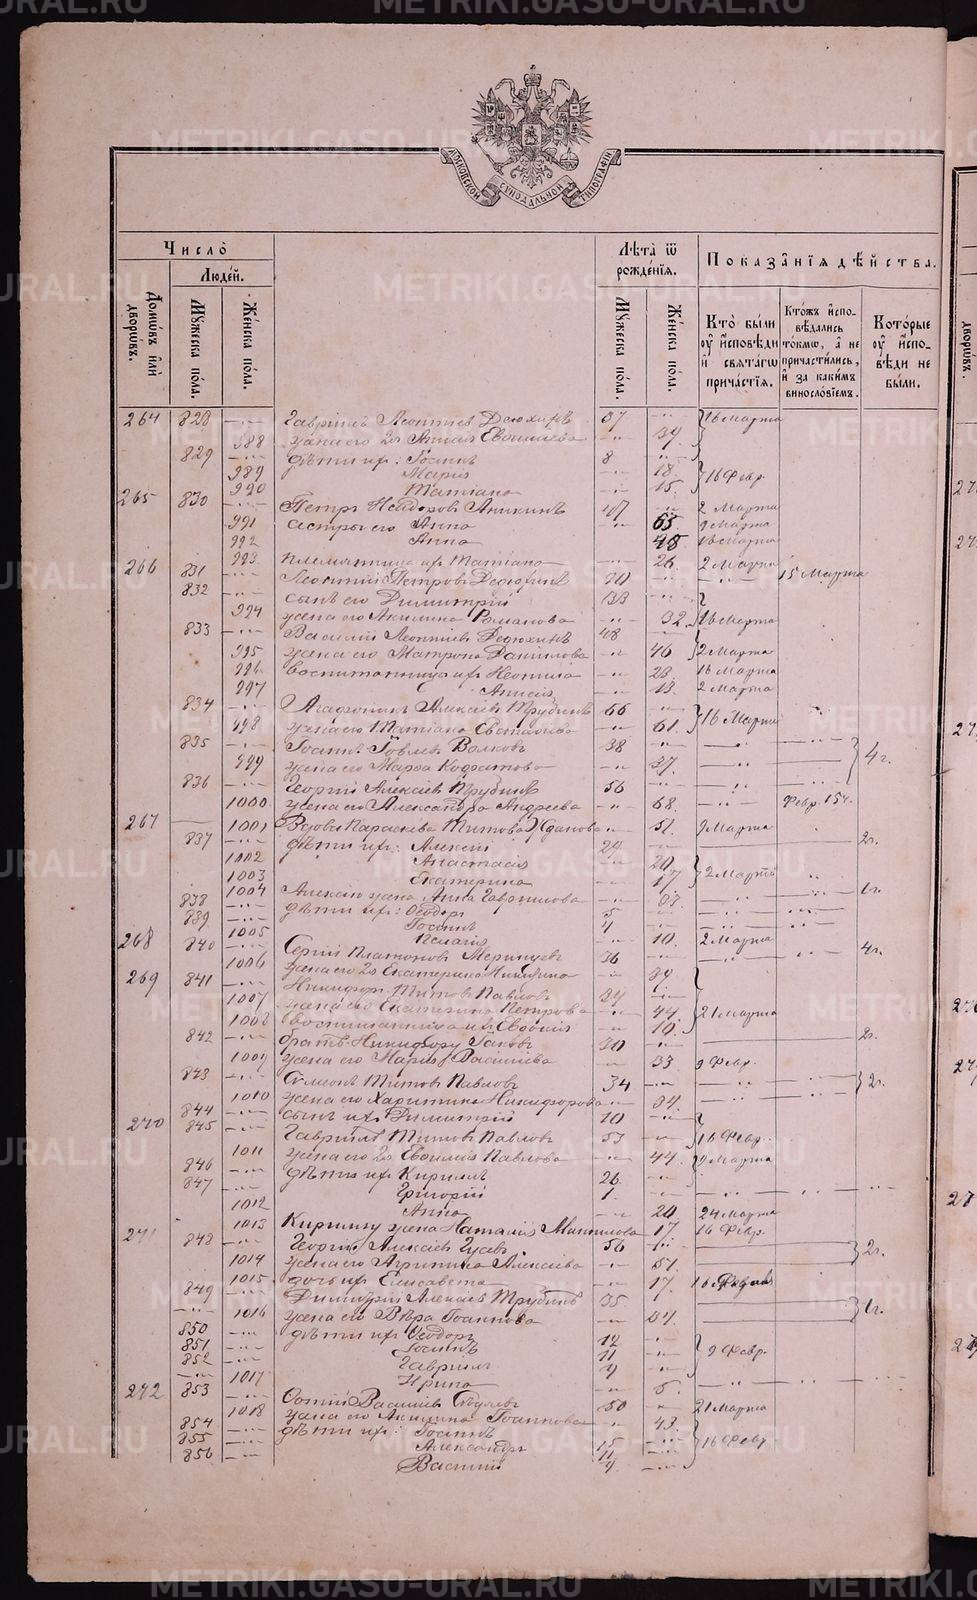 METRIKI.GASO-URAL.RU
МОСКОВСКОЙ СѴНОДАЛЬНОЙ ТИПОГРАФІИ
Число̀
Людéй.
Домѡ́въ и҆лѝ дворѡ́въ.
Мꙋ́жеска по́ла.
Же́нска по́ла.
Лѣ́та ѿ рожде́нїѧ.
Мꙋ́жеска по́ла.
Же́нска по́ла.
Показа̑нїѧ дѣ́йства.
Кто̀ бы́ли оу҆ и҆́сповѣди и҆ свѧта́гѡ прича́стїѧ.
Кто́жъ и҆спо-вѣ́дались то́кмѡ, а҆ не причасти́лись, и҆ за каки́мъ винослові́емъ.
Кото́рые оу҆ и҆́спо-вѣди не бы́ли.
264 828 Гавріилъ Леонтіев Дедюхинъ 37 16 Марта
988 жена его 2я Анисія 34
829 дѣти ихъ: Іоаннъ 8
989 Марія 18 16 Февр.
990 Татіана 15
265 830 Петръ Аникинъ 47 2 Марта
991 сестры его Анна 63 9 Марта
992 Анна 48 16 Марта
993 племянница их Татіана 26 2 Марта
266 831 Леонтій Петровъ Дедюхинъ 70 15 Марта
832 сынъ его Димитрій 33
994 жена его Акилина Романова 32 16 Марта
833 Василій Леонтіевъ Дедюхинъ 48
995 жена его Матрона Данилова 46 2 Марта
996 воспитанница ихъ 28 16 Марта
997 Анисія 13 2 Марта
834 Агафоникъ Алексіевъ Трубинъ 66
998 жена его Татіана 61 16 Марта
835 Іоаннъ Іовлевъ Волковъ 38
999 жена его Марѳа Кодратова 37 4 г.
836 Георгій Алексіевъ Трубинъ 56
1000 жена его Александра Андреева 68 Февр. 15 ч.
267 1001 Вдова Параскева Титова Жданова 51 9 Марта
837 дѣти их: Алексій 24 2 г.
1002 Анастасія 20
1003 Екатерина 17 2 Марта
1004 Алексію жена Анна Гаврилова
838 дѣти их: Ѳеодоръ 5
839 Іоаннъ 4
1005 Пелагія 10 2 Марта
268 840 Сергій Платоновъ 36 4 г.
1006 жена его 2я Екатерина Никитина 34
269 841 Никифоръ Титовъ Павловъ
1007 жена его Екатерина Петрова 44 21 Марта
1008 воспитанница их Евдокія 10
842 братъ Никифору Іаковъ 30 2 г.
1009 жена его Марія Васильева 33 9 Февр.
843 Сѵмеонъ Титовъ Павловъ 34
1010 жена его Харитина Никифорова 34 2 г.
844 сынъ их Димитрій 10
270 845 Гавріилъ Титовъ Павловъ 53 16 Февр.
1011 жена его 2я Евдокія Павлова 44 9 Марта
846 дѣти их Кириллъ 26
847 Григорій 1
1012 Анна 20 24 Марта
1013 Кириллу жена Наталія 17 16 Февр.
271 848 Георгій Алексіевъ Гусевъ 56
1014 жена его Агрипина Алексіева 51 2 г.
1015 дочь их Елисавета 17
849 Димитрій Алексіевъ Трубинъ 35
1016 жена его Вѣра Іоаннова 34
850 дѣти их Ѳеодоръ 12
851 Іоаннъ 11 9 Февр.
852 Гавріилъ 9
1017 Ирина 5
272 853 Василіевъ 50 21 Марта
1018 жена его Акилина Іоаннова 43
854 дѣти их: Іоаннъ 15 16 Февр.
855 Александръ 11
856 Василій 4